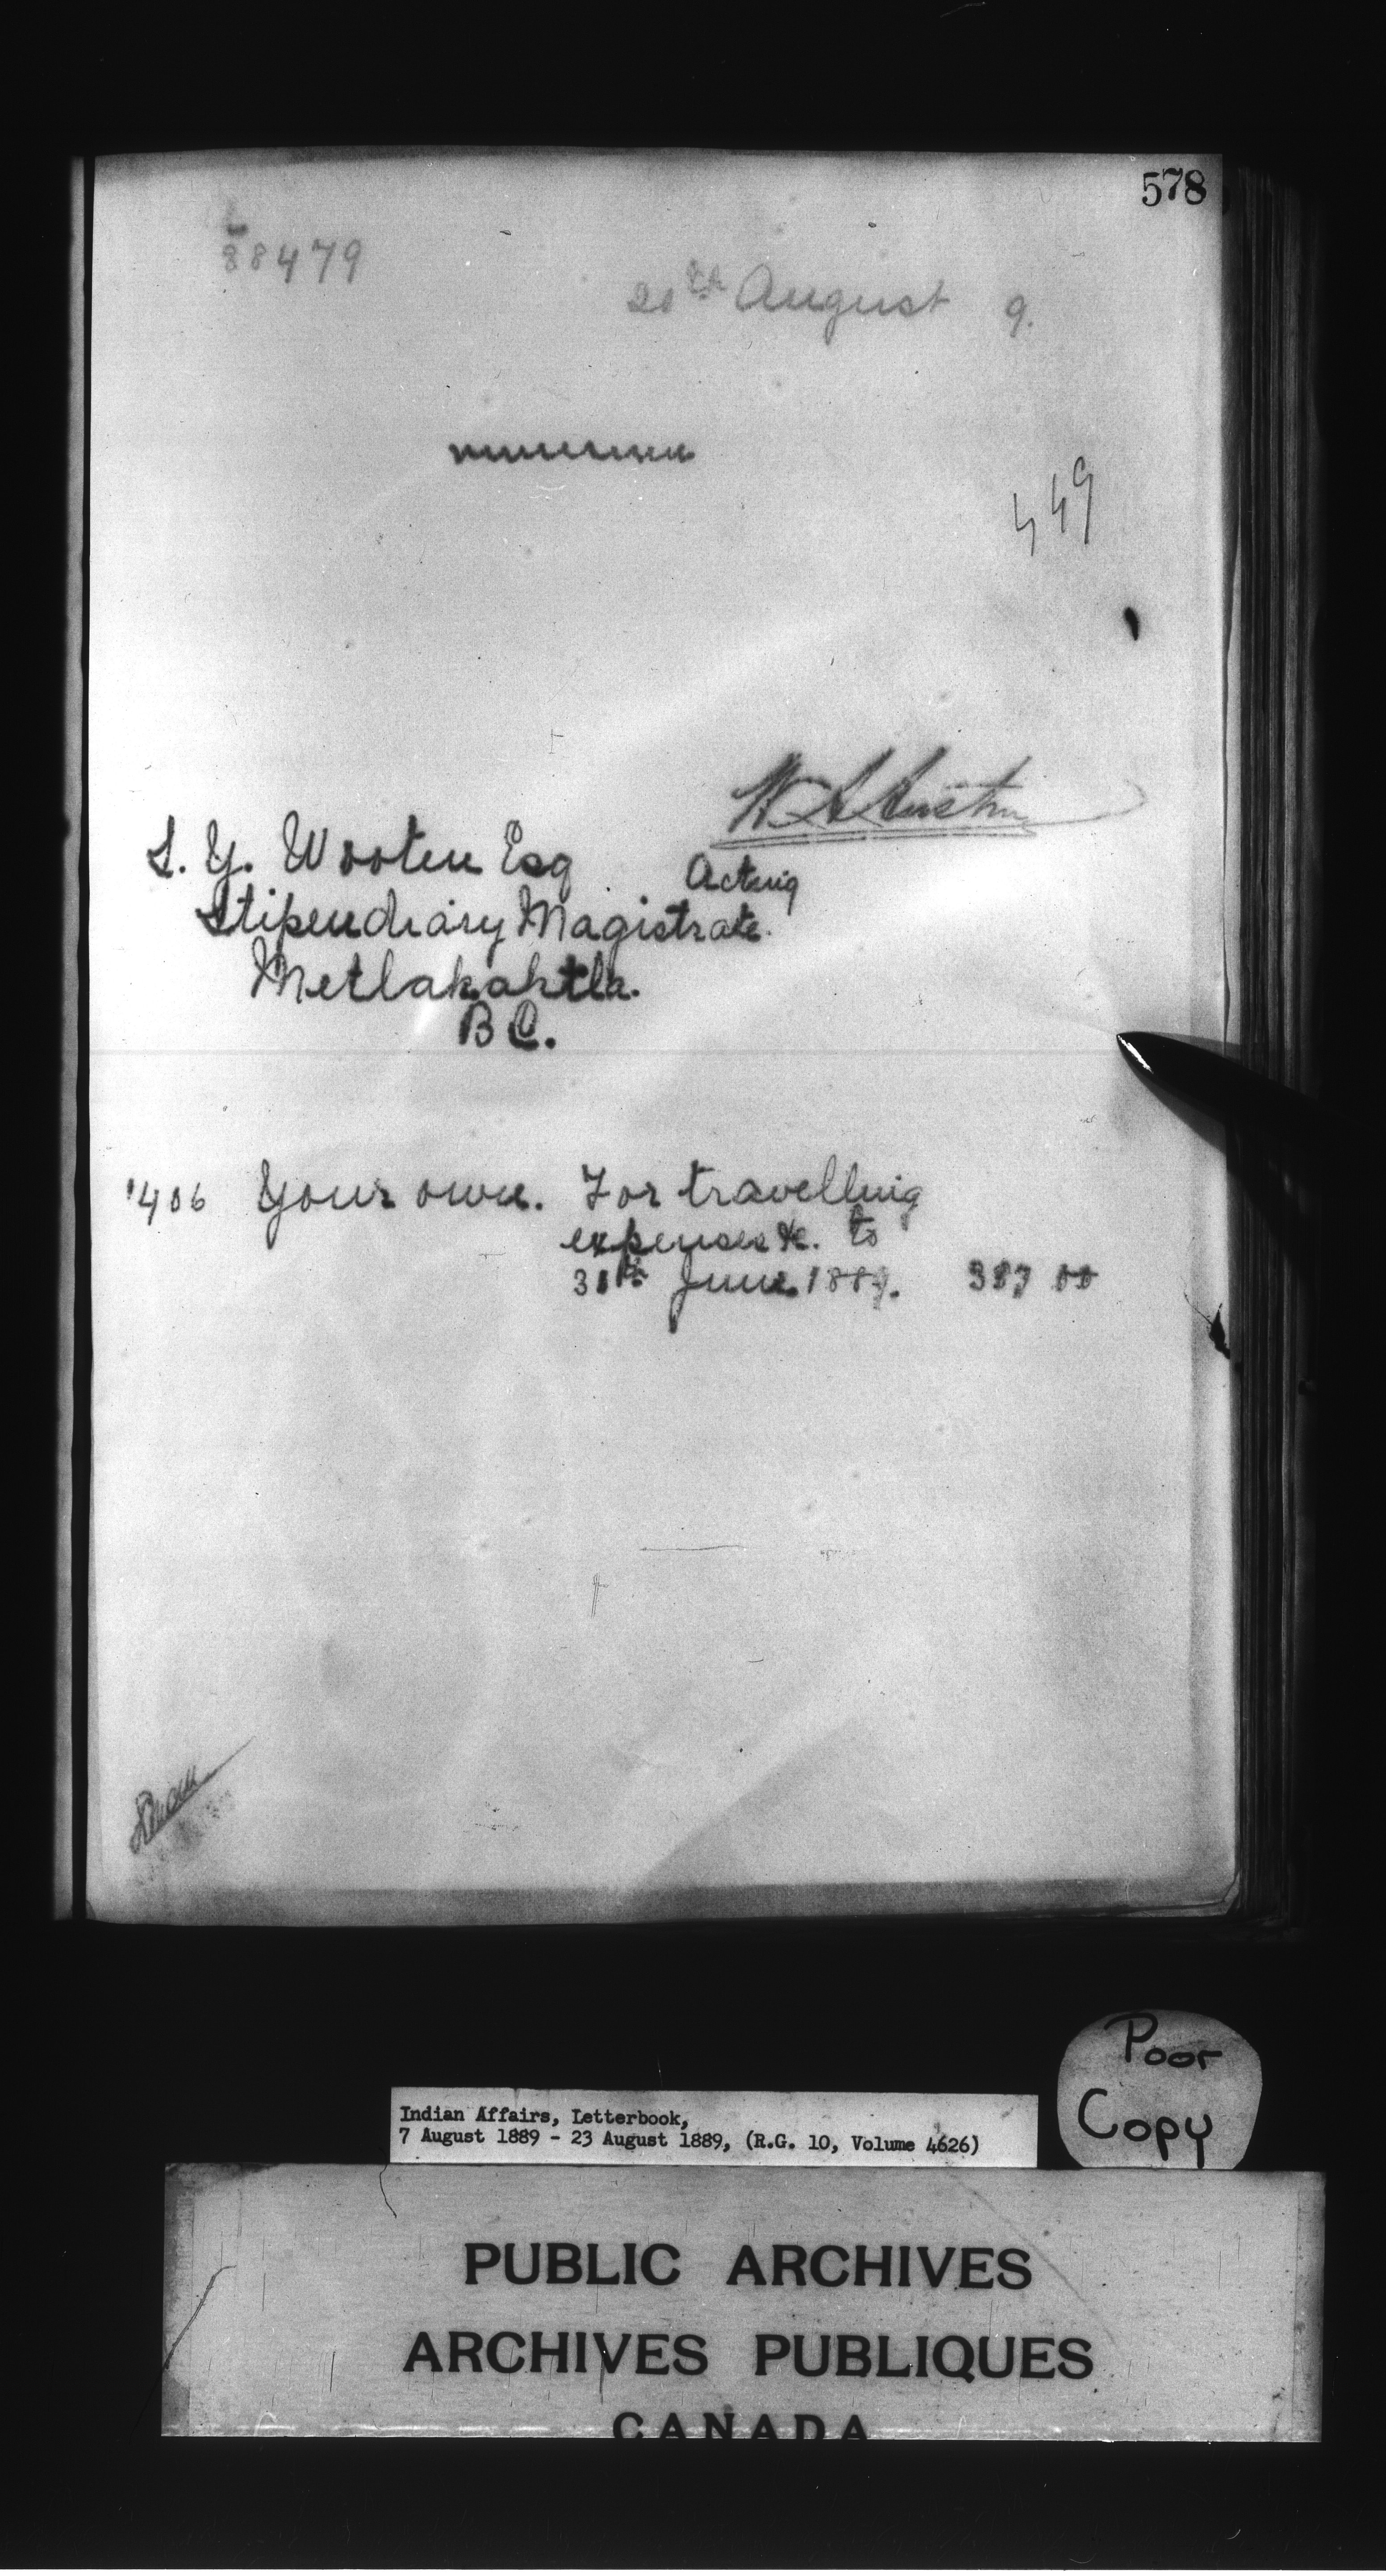 578
L
38479
20th August 9.
449
W A Austin
S. Y. Wooten Esq
Acting
Stipendiary Magistrate.
Metlakahtla.
B C.
1406 Your own. For travelling
expenses &c. to
31th June 1889. 387 00
Poor
Copy
Indian Affairs, Letterbook,
7 August 1889 - 23 August 1889, (R.G. 10, Volume 4626)
PUBLIC ARCHIVES
ARCHIVES PUBLIQUES
CANADA